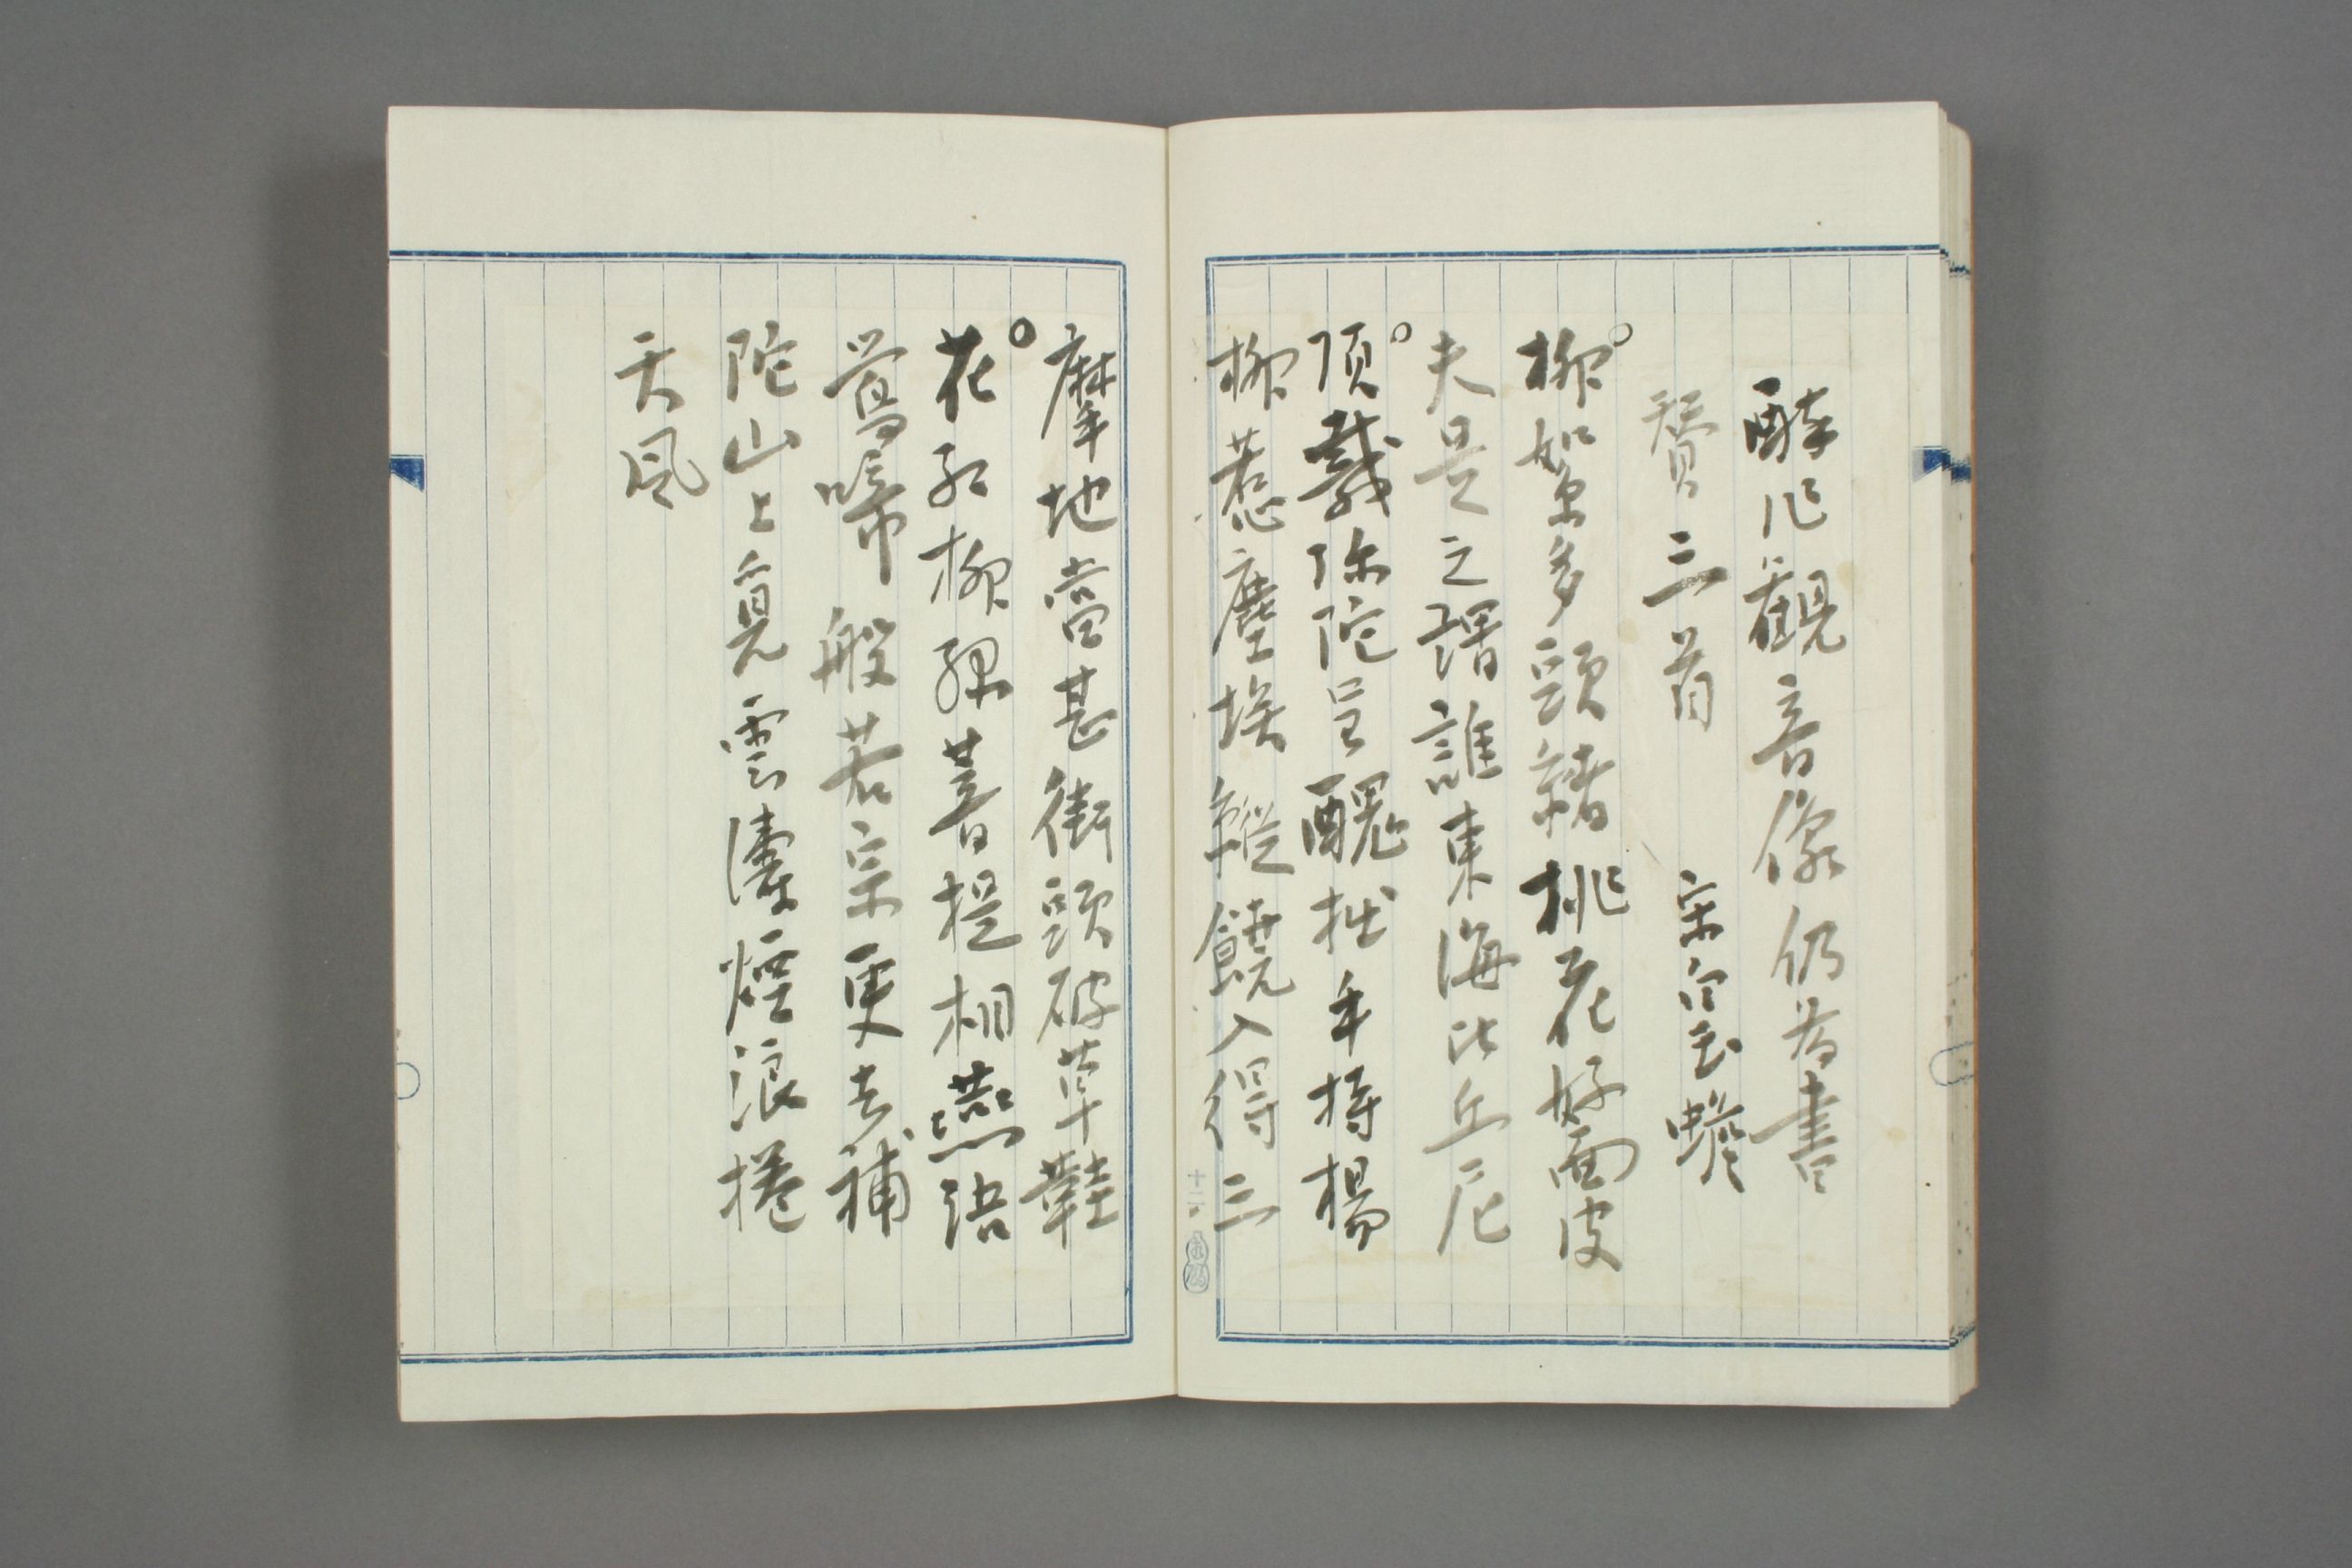 醉作觀音像仍爲書
贊三首　宋白玉蟾
柳絮多頭緒桃花好面皮
夫是之謂誰東海比丘尼
頂戴弥陀呈醜拙手持楊
柳惹塵埃縱饒入得三
摩地當甚街頭破草鞋
花紅柳緑菩提相燕語
鶯啼般若宗更去補
陀山上覓雲濤煙浪捲
天風